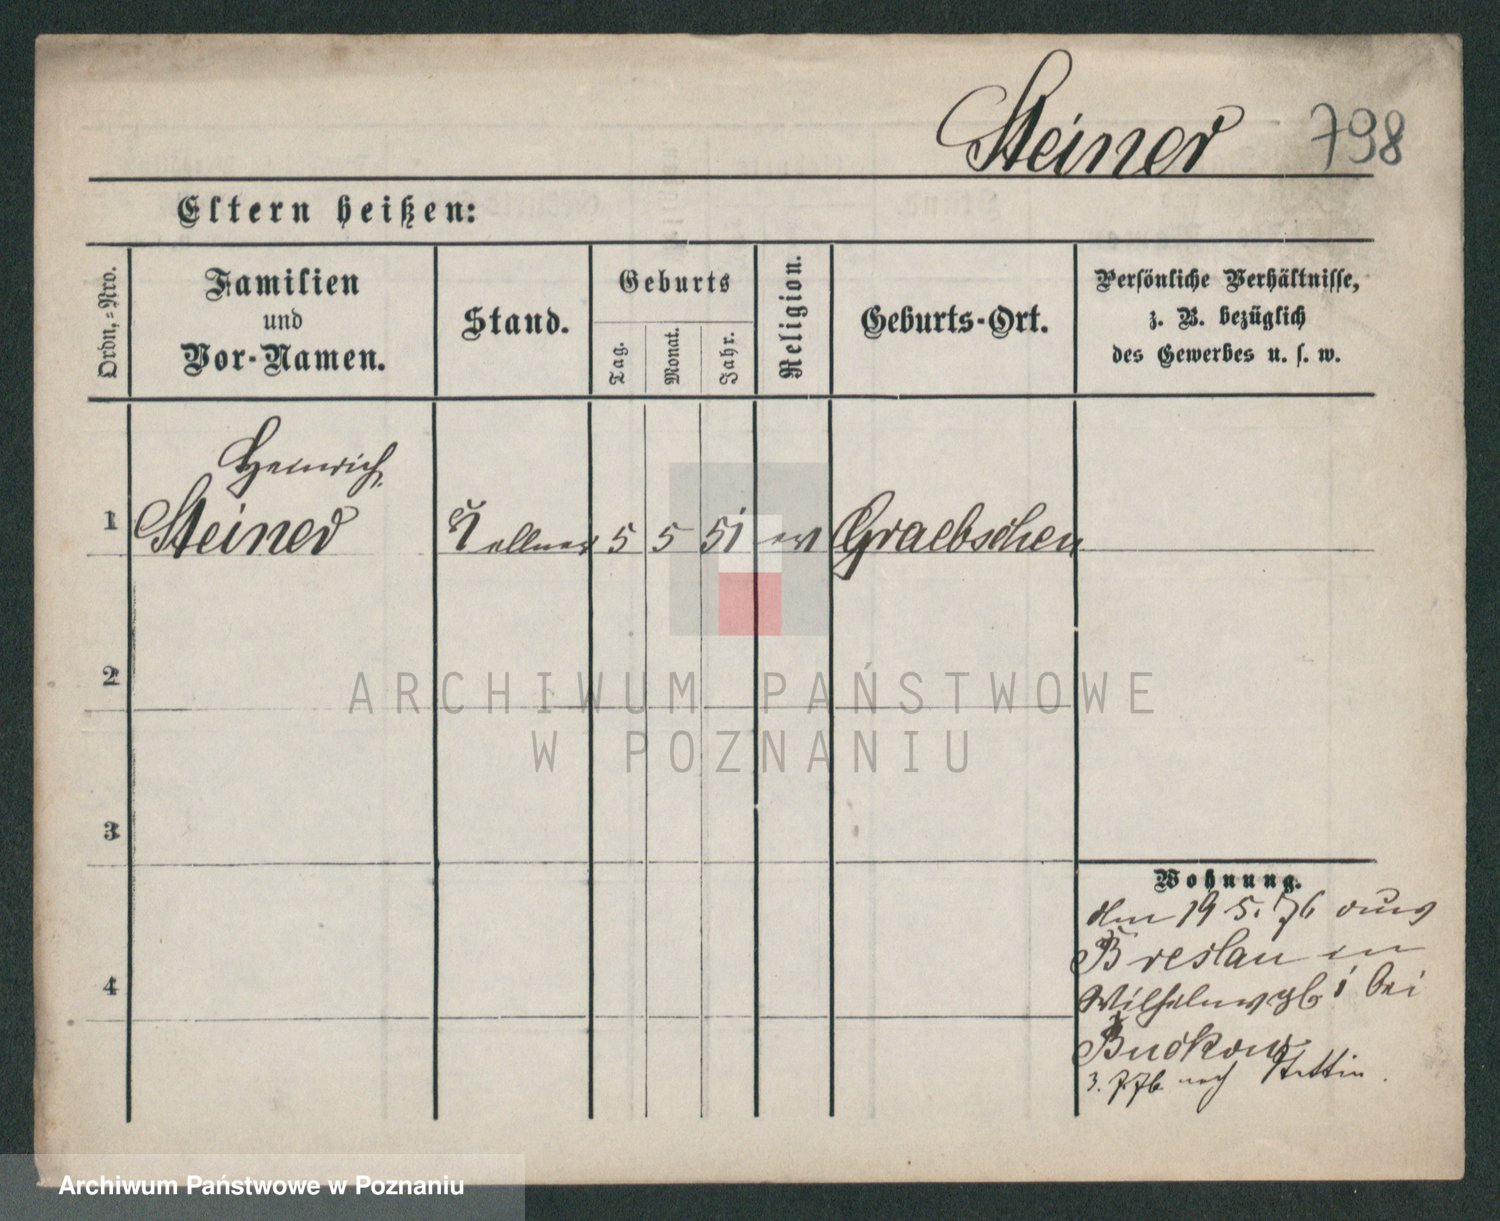 Steiner 798
Eltern heißen:
Ordn,=Nro.
Familien
und
Vor-Namen.
Stand.
Geburts
Tag.
Monat.
Jahr.
Religion.
Geburts-Ort.
Persönliche Verhältnisse,
z. B. bezüglich
des Gewerbes u. s. w.
Heinrich
1 Steiner Kellner 5 5 51 ev Graebschen
2
ARCHIWUM PAŃSTWOWE
W POZNANIU
3
4
Wohnung.
den 19 5. 76 aus
Breslau in
Wilhelmsplb 1 bei
Buckow
3. 7. 76 nach Stettin.
Archiwum Państwowe w Poznaniu